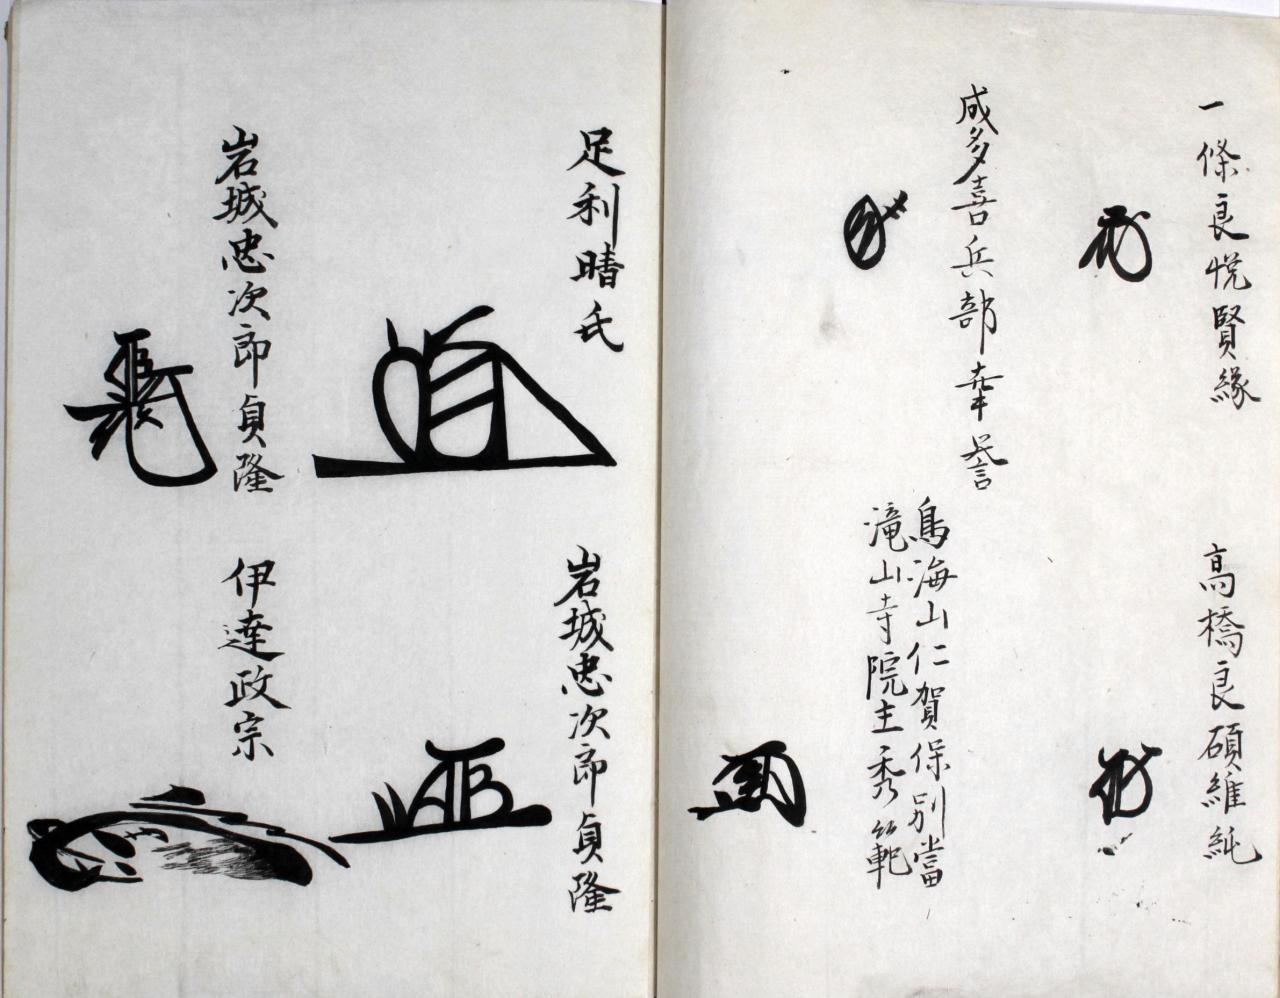 一條良悦賢縁
高橋良碩維純
成多喜兵部幸誉
鳥海山仁賀保別當
滝山寺院主秀範
足利晴氏
岩城忠次郎貞隆
岩城忠次郎貞隆
伊達政宗